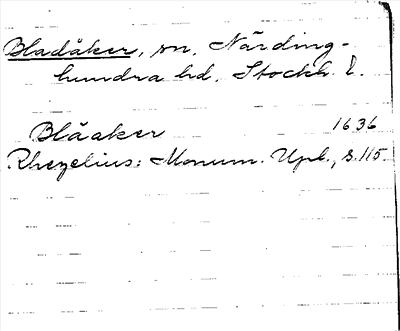 Bladåker, sn, Närding-
hundra hd, Stockh. l.
Blåaker 1636
Rhezelius: Monum. Upl., s. 115.